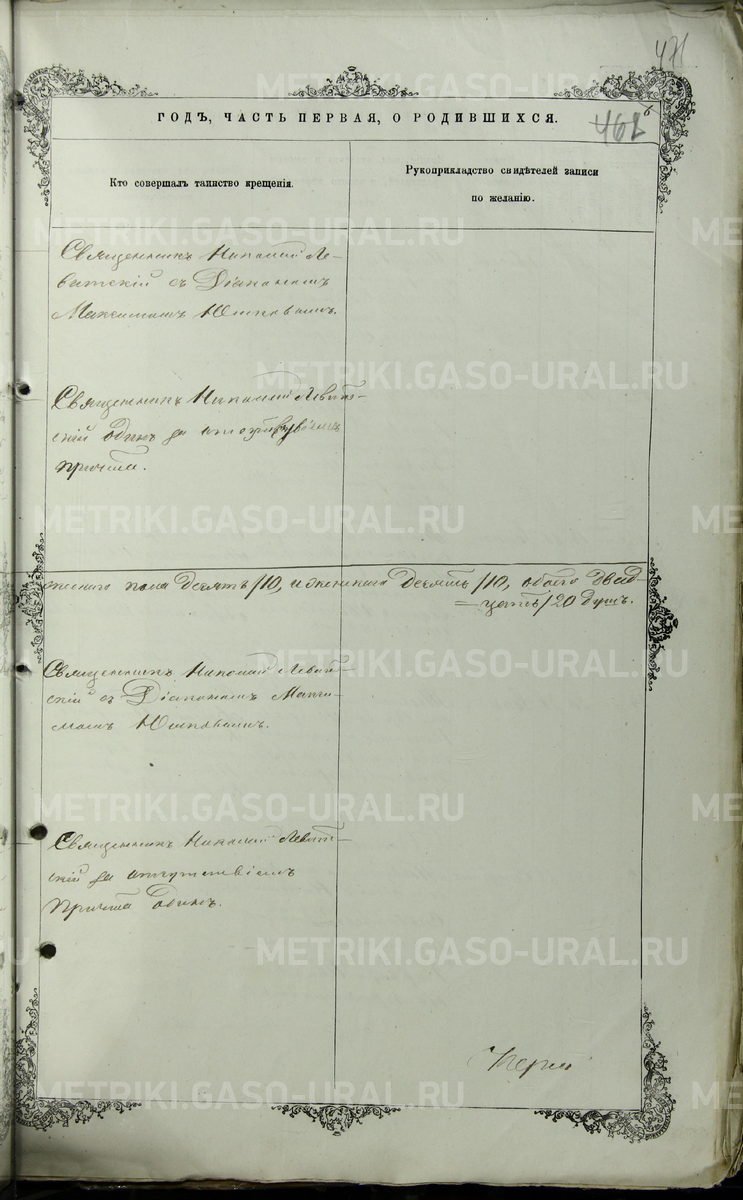 471
ГОДЪ, ЧАСТЬ ПЕРВАЯ, О РОДИВШИХСЯ.
462
Кто совершалъ таинство крещенія.
Рукоприкладство свидѣтелей записи
по желанію.
Священникъ Николай Ле-
витскій съ Діакономъ
Максимомъ Юшковымъ.
Священникъ Николай Левит-
скій одинъ за отсутствіемъ
причта.
жескаго пола десять /10, и женскаго десять /10, обоего двад-
цать /20 душъ.
Священникъ Николай Левит-
скій съ Діакономъ Макси-
момъ Юшковымъ.
Священникъ Николай Левит-
скій за отсутствіемъ
причта одинъ.
METRIKI.GASO-URAL.RU